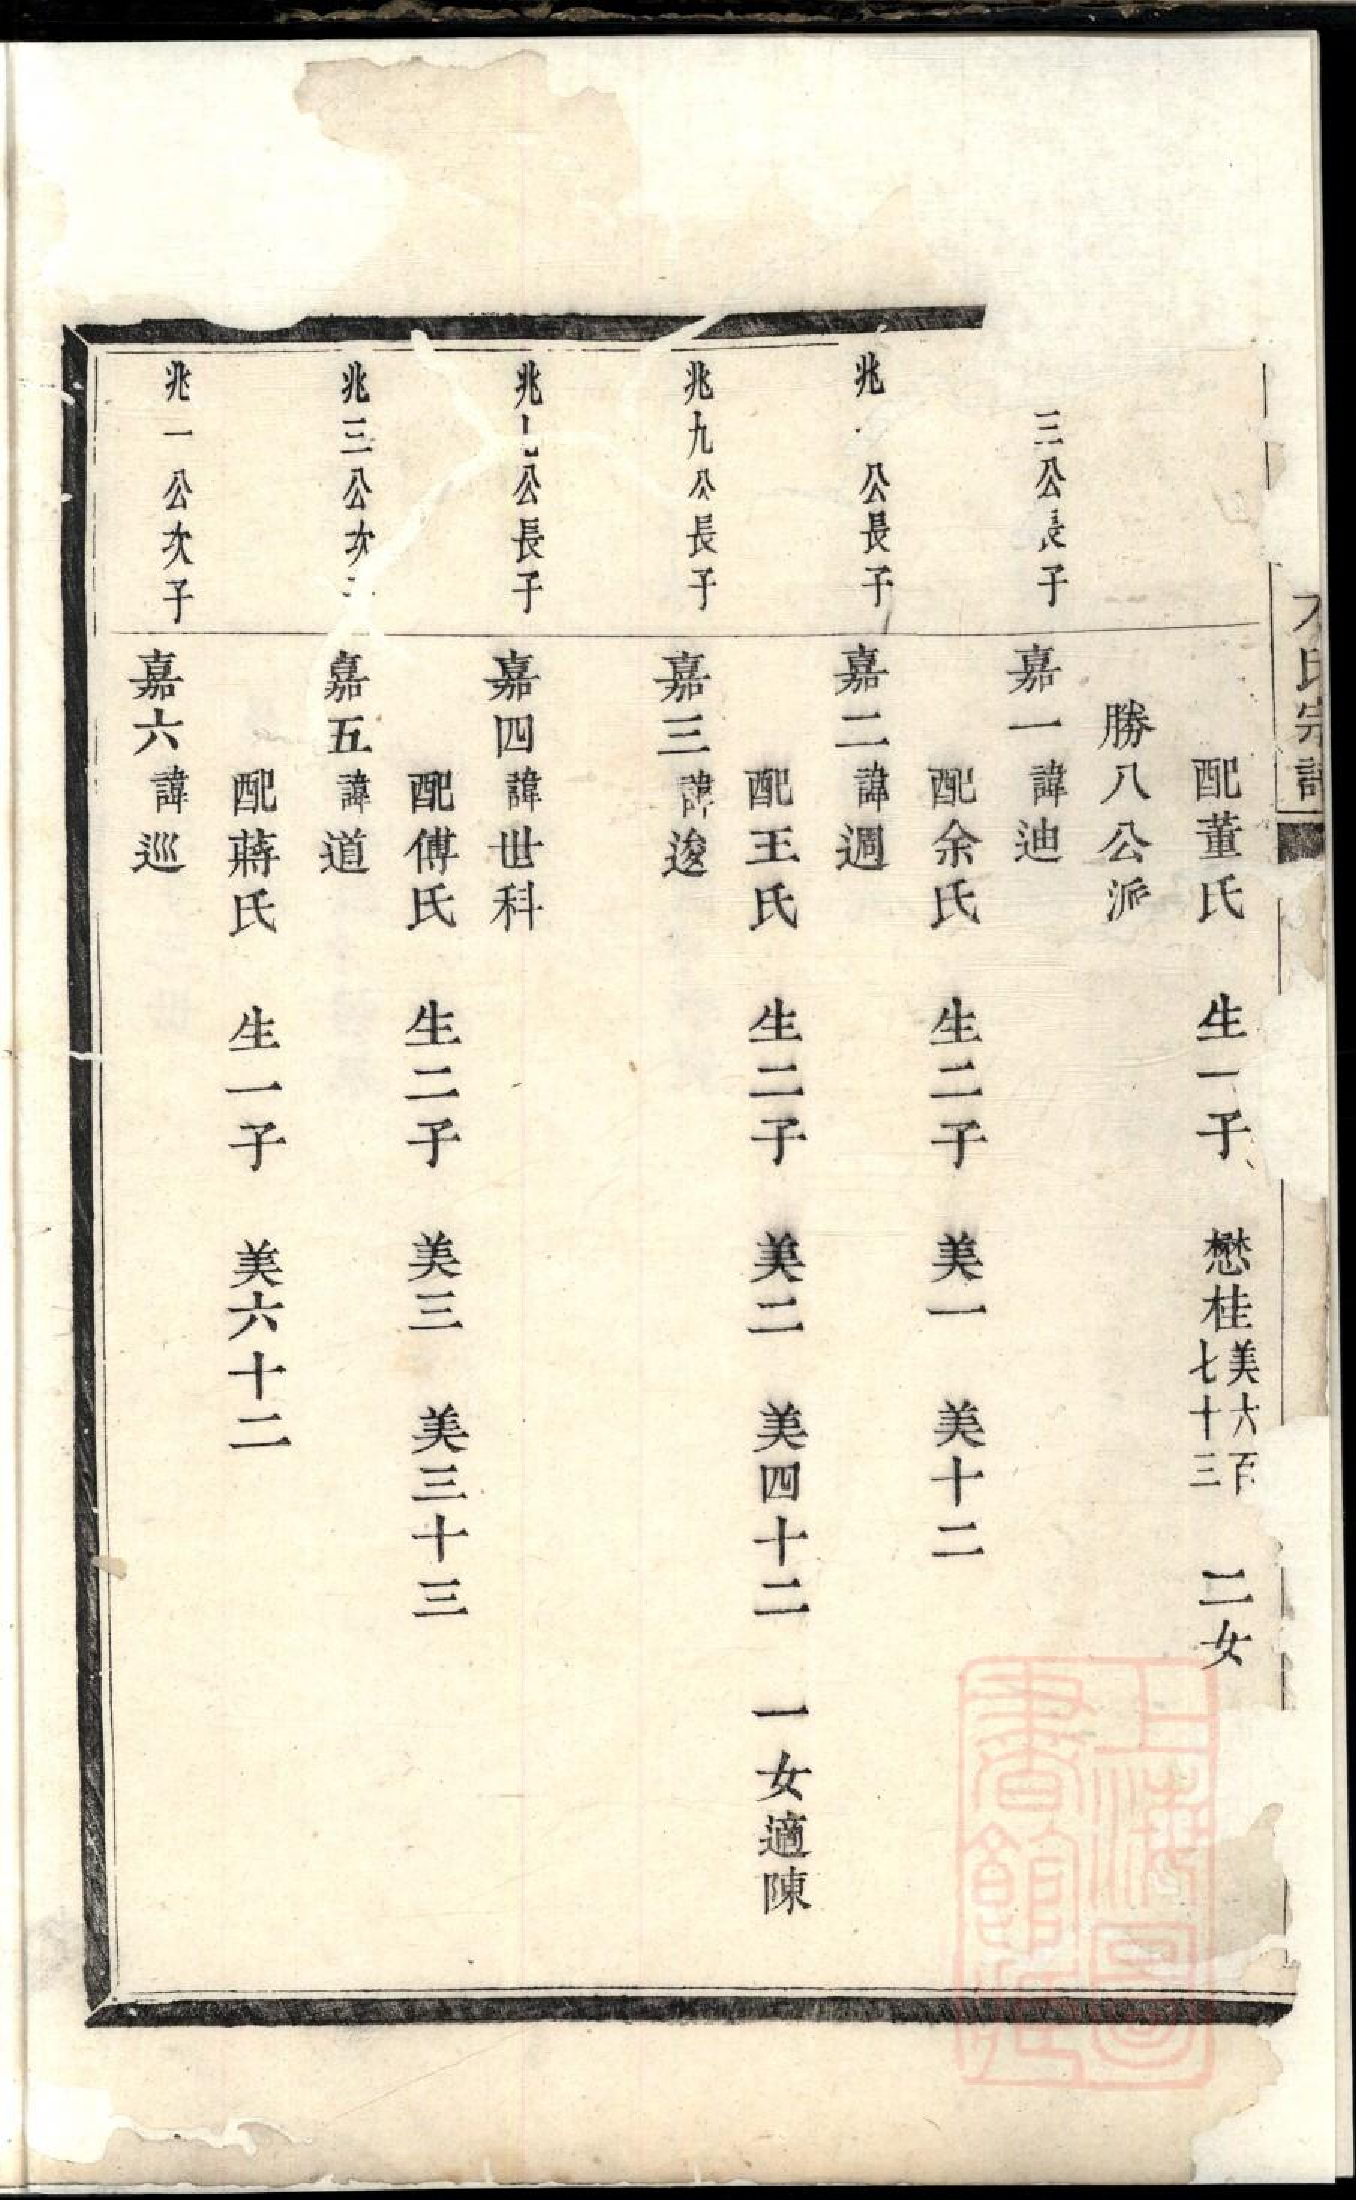 氏宗譜
配董氏　生一子　懋桂美六百七十三　二女
勝八公派
三公長子　嘉一諱迪
配余氏　生二子　美一　美十二
兆　公長子　嘉二諱週
配王氏　生二子　美二　美四十二　一女適陳
兆九公長子　嘉三諱逡
兆　公長子　嘉四諱世科
配傅氏　生二子　美三　美三十三
兆三公次　嘉五諱道
配蔣氏　生一子　美六十二
兆一公次子　嘉六諱巡
上海圖
書館藏